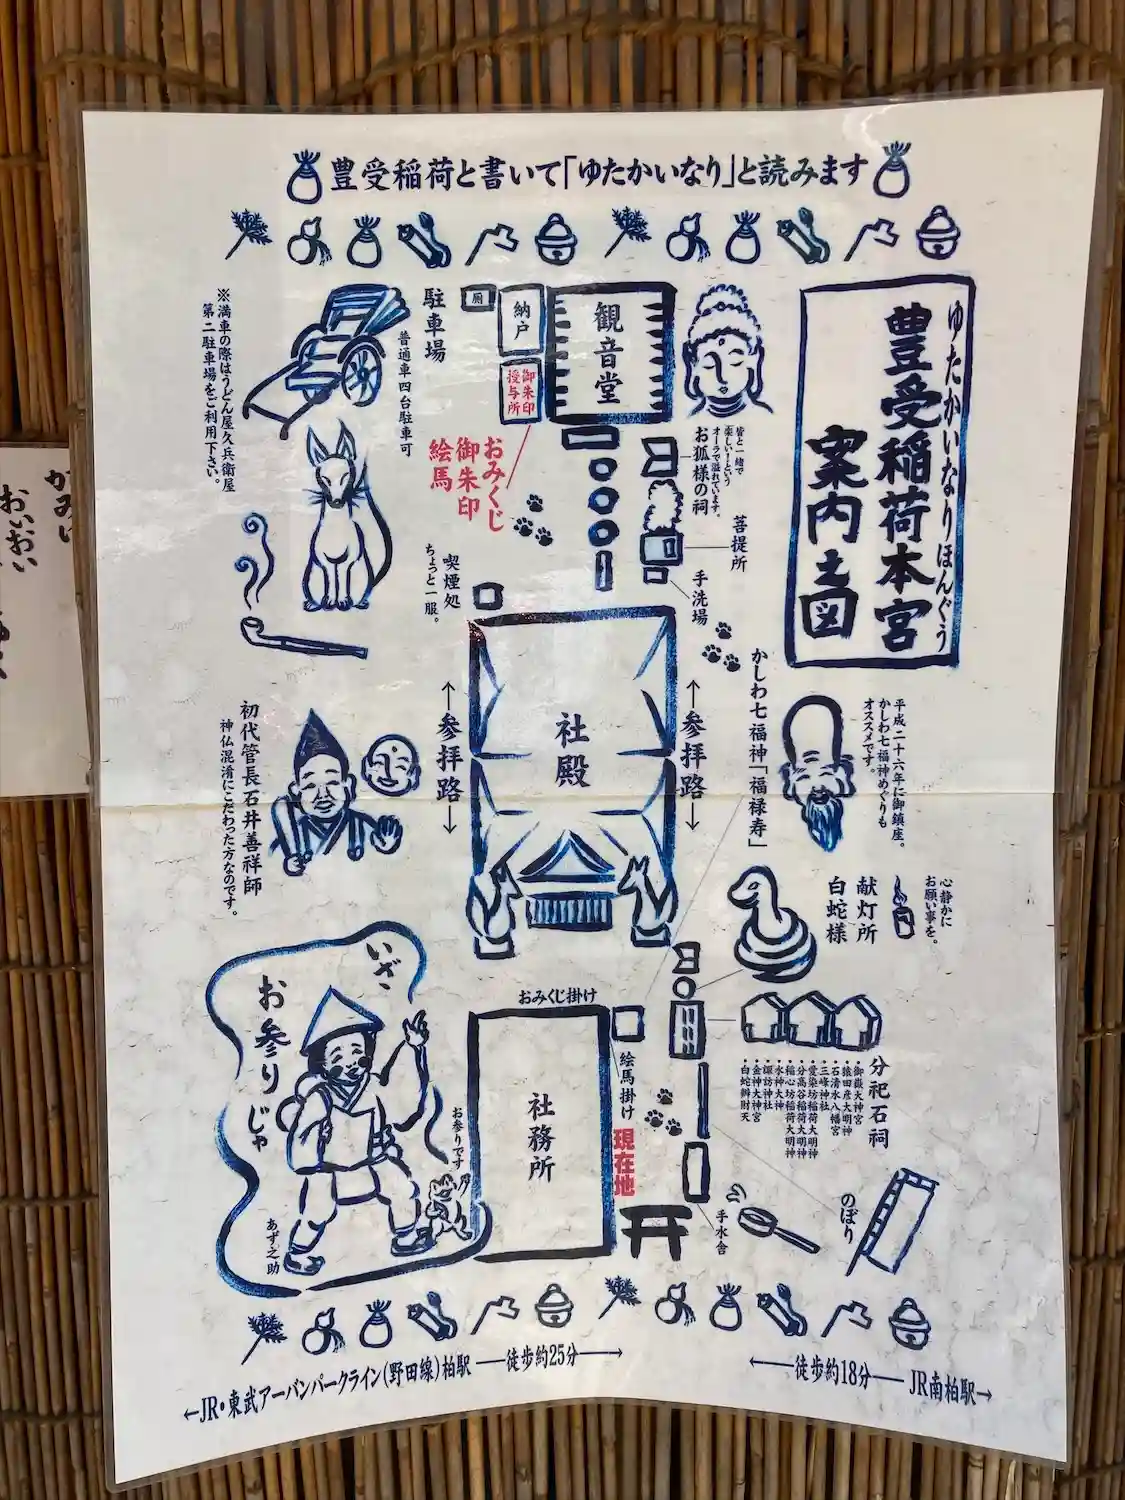 豊受稲荷と書いて「ゆたかいなり」と読みます
ゆたかいなりほんぐう
豊受稲荷本宮
案内之図
観音堂
納戸
厠
御朱印
授与所
おみくじ
御朱印
絵馬
駐車場
普通車四台駐車可
※満車の際はうどん屋久兵衛屋
第二駐車場をご利用下さい。
皆と一緒で
楽しい!という
オーラで溢れています。
お狐様の祠
菩提所
手洗場
喫煙処
ちょっと一服。
社殿
←参拝路→
←参拝路→
かしわ七福神「福禄寿」
平成二十六年に御鎮座。
かしわ七福神めぐりも
オススメです。
初代管長石井善祥師
神仏混淆にこだわった方なのです。
心静かに
お願い事を。
献灯所
白蛇様
分祀石祠
・御嶽大神宮
・猿田彦大明神
・石清水八幡宮
・三峰神社
・愛染坊稲荷大明神
・分高谷稲荷大明神
・稲心坊稲荷大明神
・水神大神
・諏訪神社
・金神大神宮
・白蛇辯財天
おみくじ掛け
絵馬掛け
現在地
社務所
手水舎
のぼり
いざ、
お参りじゃ
お参りです
あず之助
←JR・東武アーバンパークライン(野田線)柏駅 ―徒歩約25分→
←徒歩約18分― JR南柏駅→
おいおい